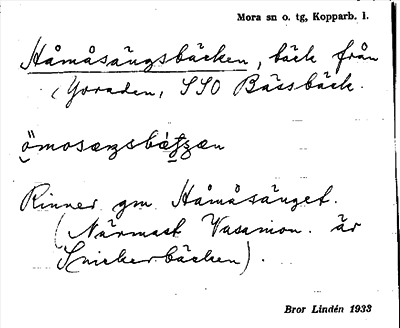 Mora sn o. tg, Kopparb. l.
Håmåsängsbäcken, bäck från
(Goraden, SSO Bässbäck.
ömosæŋsbæ̀ʃʃæn
Rinner gm Håmåsänget.
(Närmast Vasamon. är
Snickerbäcken).
Bror Lindén 1933